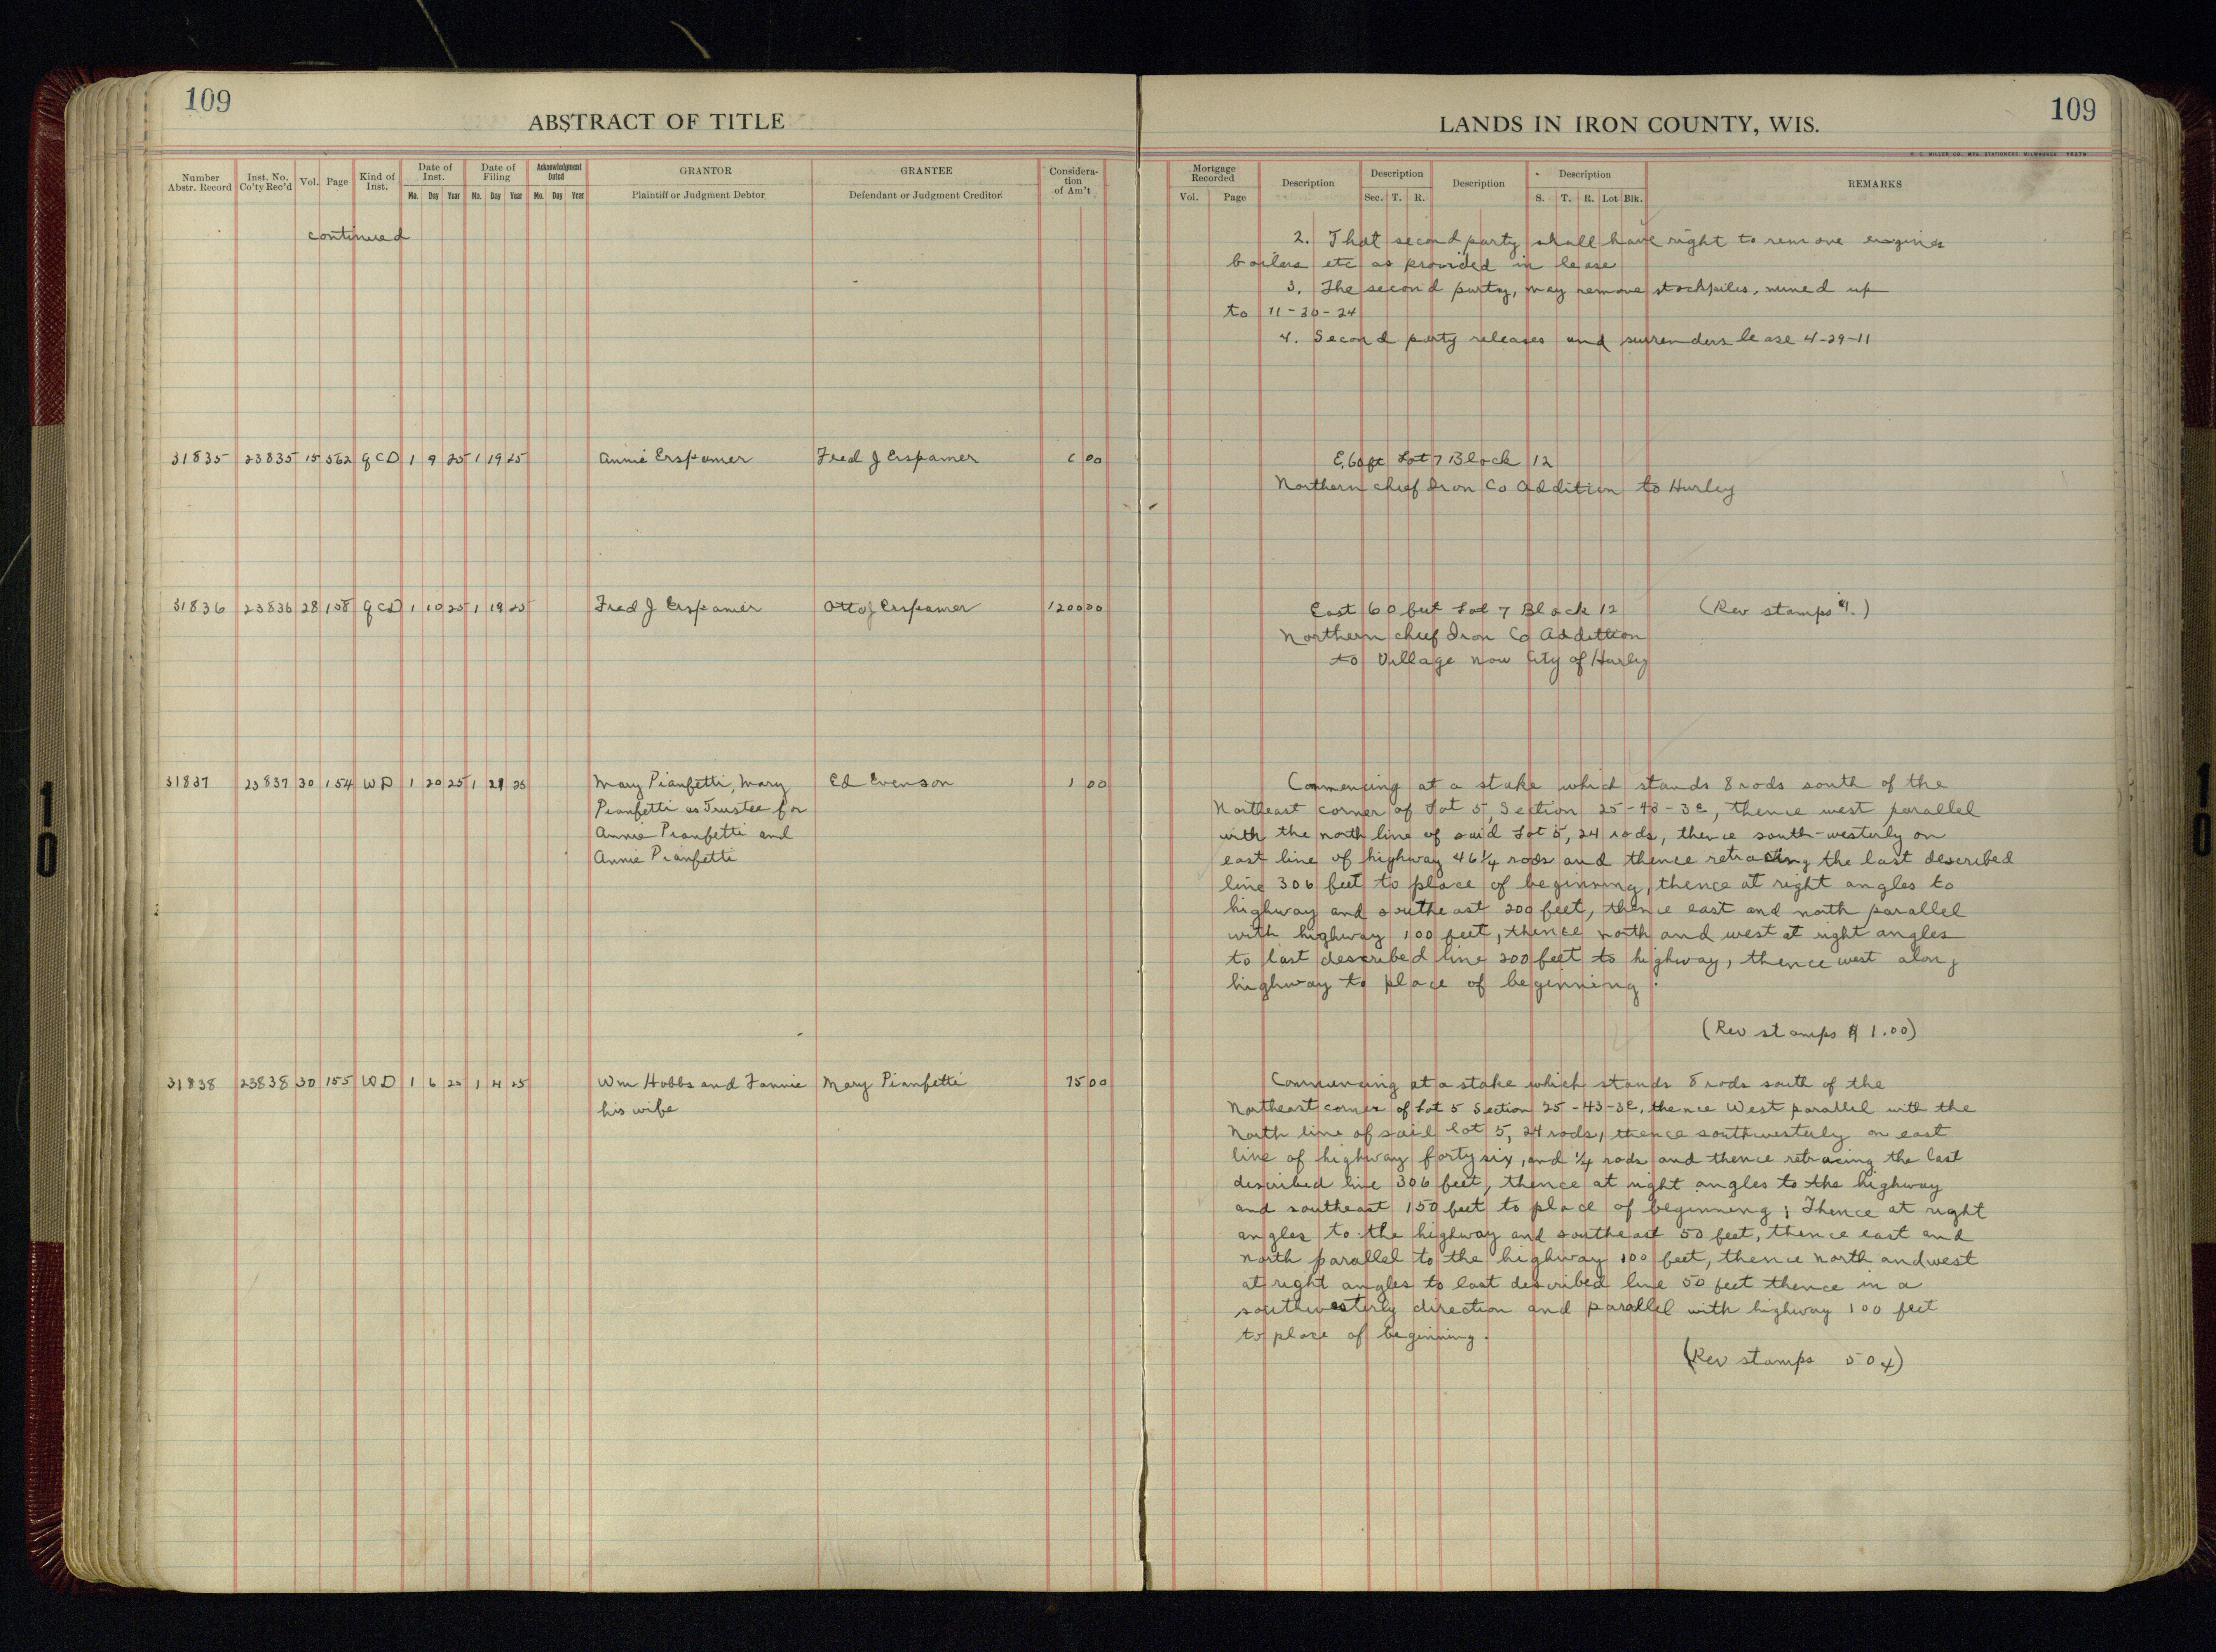 109
ABSTRACT OF TITLE
LANDS IN IRON COUNTY, WIS.
109
H. C. MILLER CO., MFG. STATIONERS, MILWAUKEE
Number Abstr. Record | Inst. No. Co'ty Rec'd | Vol. | Page | Kind of Inst. | Date of Inst. Mo. Day Year | Date of Filing Mo. Day Year | Acknowledgment Dated Mo. Day Year | GRANTOR Plaintiff or Judgment Debtor | GRANTEE Defendant or Judgment Creditor | Consideration of Am't
Mortgage Recorded Vol. Page | Description | Description Sec. T. R. | Description | Description S. T. R. Lot Blk. | REMARKS
continued
2. That second party shall have right to remove engines
boilers etc as provided in lease
3. The second party, may remove stockpiles, mined up
to 11-30-24
4. Second party releases and surrenders lease 4-29-11
31835 23835 15 562 QCD 1 9 25 1 19 25 Annie Erspamer Fred J Erspamer 00
E.60ft Lot 7 Block 12
Northern chief Iron Co Addition to Hurley
31836 23836 28 158 QCD 1 10 25 1 19 25 Fred J Erspamer Otto J Erspamer 1200 00
East 60 feet Lot 7 Block 12 (Rev stamps $1.)
Northern chief Iron Co Addition
to Village now City of Hurley
31837 23837 30 154 WD 1 20 25 1 21 25 Mary Pianfetti, Mary Ed Evenson 1 00
Pianfetti as Trustee for
Annie Pianfetti and
Annie Pianfetti
Commencing at a stake which stands 8 rods south of the
Northeast corner of Lot 5, Section 25-43-3E, thence west parallel
with the north line of said Lot 5, 24 rods, thence south-westerly on
east line of highway 46 1/4 rods and thence retracing the last described
line 306 feet to place of beginning, thence at right angles to
highway and southeast 200 feet, thence east and north parallel
with highway 100 feet, thence north and west at right angles
to last described line 200 feet to highway, thence west along
highway to place of beginning.
(Rev stamps $1.00)
31838 23838 30 155 WD 1 6 25 1 25 Wm Hobbs and Fannie Mary Pianfetti 75 00
his wife
Commencing at a stake which stands 8 rods south of the
Northeast corner of Lot 5 Section 25-43-3E, thence West parallel with the
North line of said lot 5, 24 rods, thence southwesterly on east
line of highway forty six, and 1/4 rods and thence retracing the last
described line 306 feet, thence at right angles to the highway
and southeast 150 feet to place of beginning; Thence at right
angles to the highway and southeast 50 feet, thence east and
north parallel to the highway 100 feet, thence north and west
at right angles to last described line 50 feet thence in a
southwesterly direction and parallel with highway 100 feet
to place of beginning.
(Rev stamps 50¢)
10
10